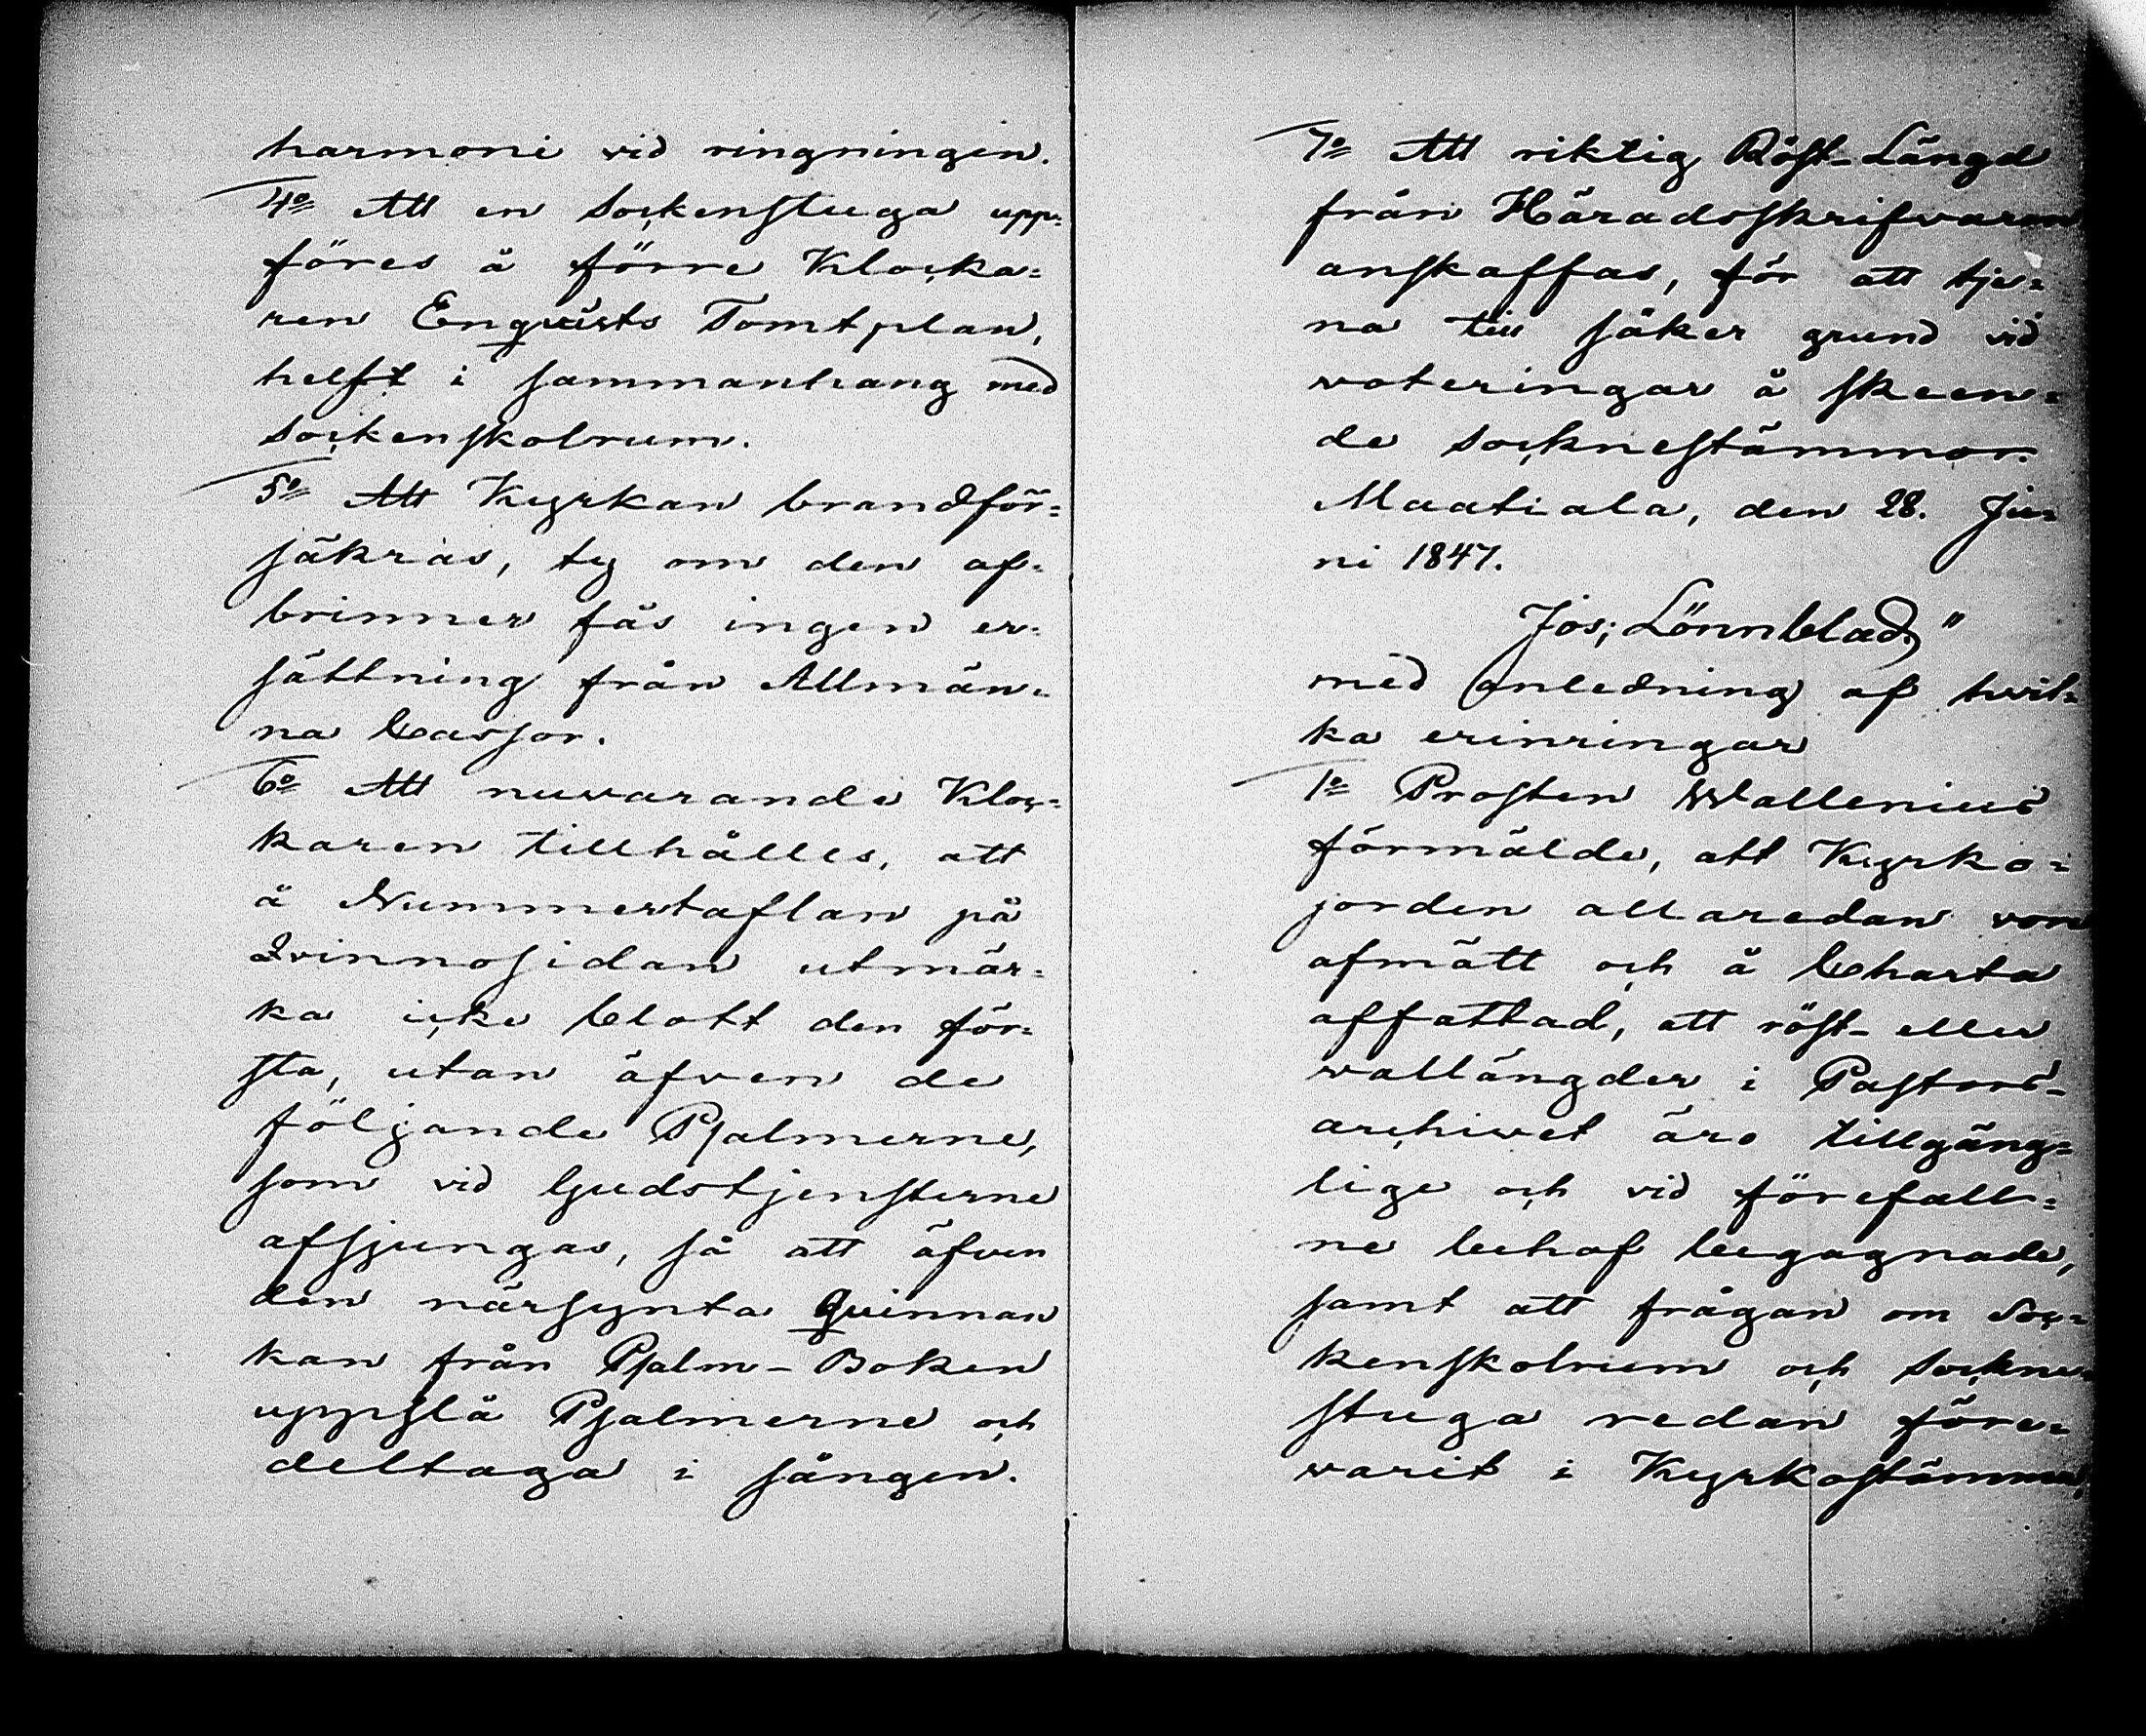 harmoni vid ringningen.
4:o Att en Sockenstuga upp=
föres å förre Klocka=
ren Enqvists Tomtplan,
helst i sammanhang med
Sockenskolrum.
5:o Att Kyrkan brandför=
säkras, ty om den af=
brinner fås ingen er=
sättning från Allmän=
na Cassor.
6:o Att nuvarande Kloc=
karen tillhålles, att
å Nummertaflan på
Qvinnosidan utmär=
ka icke blott den för=
sta, utan äfven de
följande Psalmerne,
som vid Gudstjensterne
afsjungas, så att äfven
den närsynta Qvinnan
kan från Psalm-Boken
uppslå Psalmerne och
deltaga i sången.
7:o Att riktig Röst-Längd
från Häradsskrifvaren
anskaffas, för att tje=
na till säker grund vid
voteringar å skeen=
de Socknestämmor.
Maatiala, den 28. Ju=
ni 1847.
Jos; Lönnblad"
med anledning af hvil=
ka erinringar
1:o Prosten Wallenius
förmälde, att Kyrko=
jorden allaredan vore
afmätt och å Charta
affattad, att röst- eller
vallängder i Pastors-
archivet äro tillgäng=
lige och vid förefall=
ne behof begagnade,
samt att frågan om Soc=
kenskolrum och Sockne=
stuga redan före=
varit i Kyrkostämma,